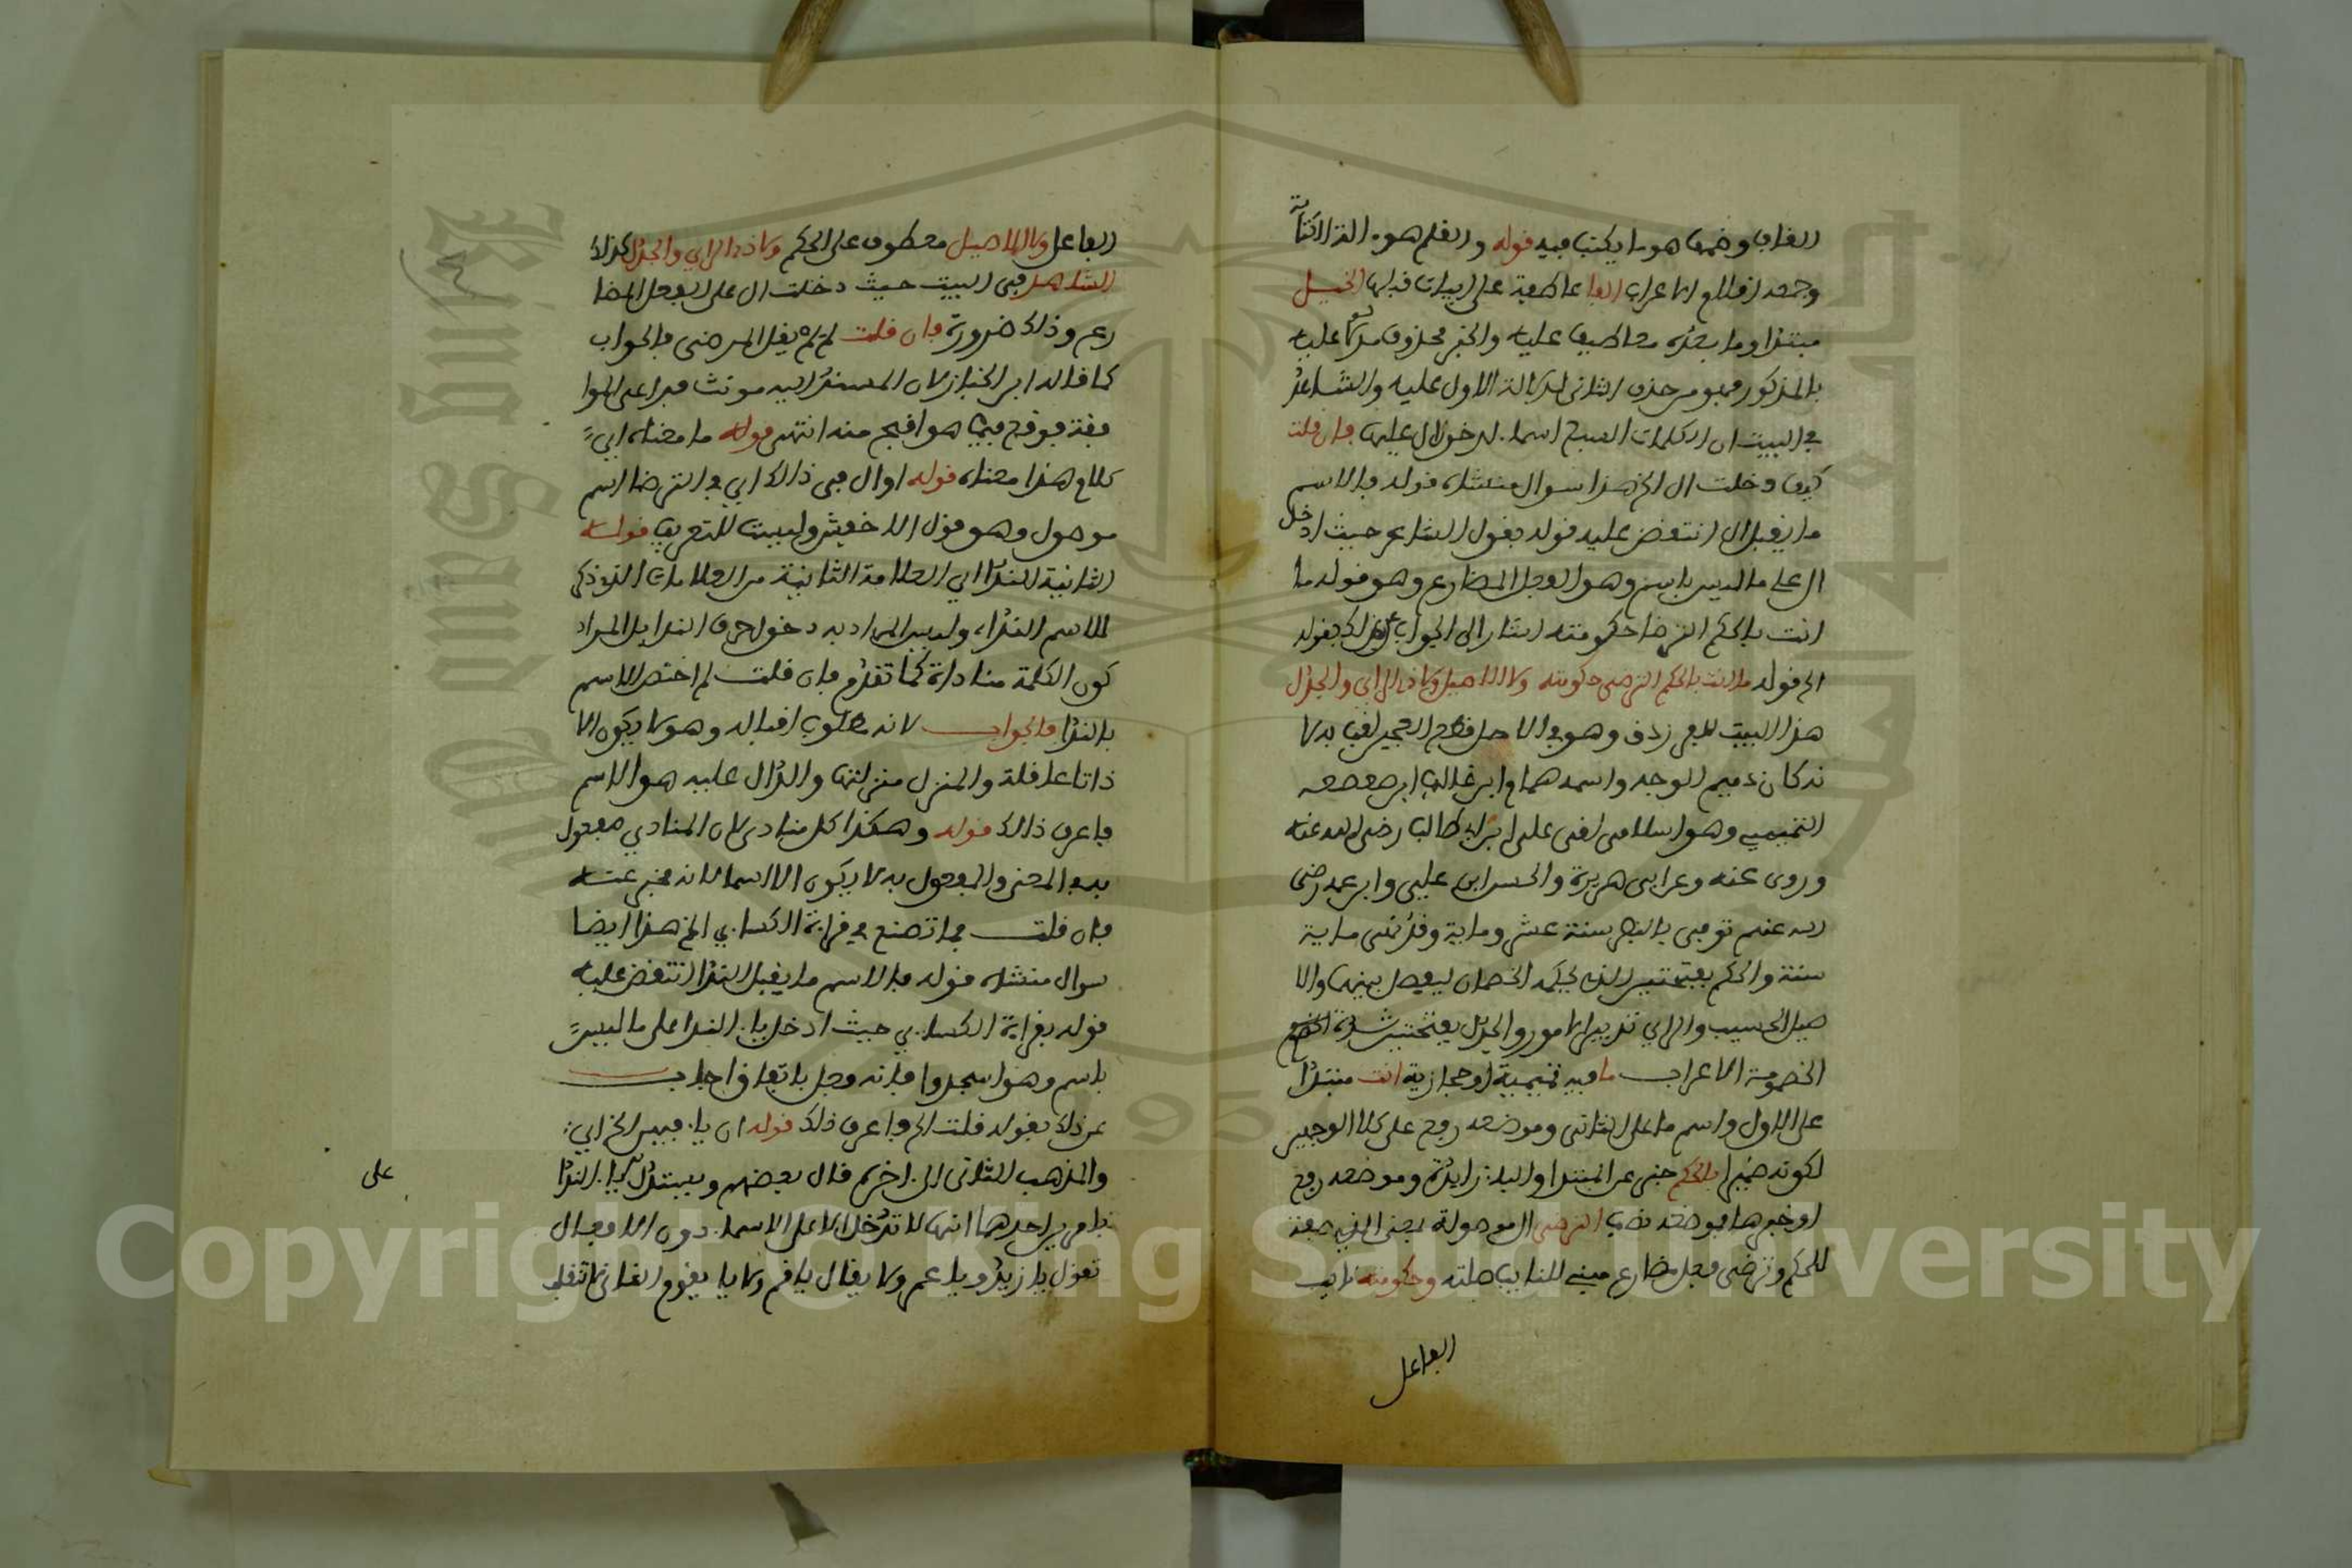 القاف وضمها هو ما يكتب فيه قوله والقلم هو الة الكتابة
وجمعه اقلام الاعراب الفا عاطفة على ابيات قبلها الخيل
مبتدا وما بعده معاطيف عليه والخبر محذوف مدلولا عليه
بالمذكور فهو من حذف الثاني لدلالة الاول عليه والشاهد
في البيت ان الكلمات السبع اسماء لدخول ال عليها فان قلت
كيف دخلت ال الخ هذا سوال منشاه قوله فالاسم
ما يقبل ال انتقض عليه قوله بقول الشاعر حيث ادخل
ال على ما ليس باسم وهو الفعل المضارع وهو قوله ما
انت بالحكم الترضى حكومته اشار الى الجواب عن ذلك بقوله
الخ قوله ما انت بالحكم الترضى حكومته ولا الاصيل ولا ذي الراي والجدل
هذا البيت للفرزدق وهو في الاصل قطع العجين لقب به لا
نه كان دميم الوجه واسمه همام ابن غالب ابن صعصعه
التميمي وهو اسلامي لقي علي ابن ابي طالب رضي الله عنه
وروى عنه وعن ابي هريرة والحسن ابن علي وابن عمر رضي
الله عنهم توفي بالبصرة سنة عشر وماية وقد ناهى ماية
سنة والحكم بفتحتين الذي يحكمه الخصمان ليفصل بينهما والا
صيل الحسيب والراي تدبير الامور والجدل بفتحتين شدة
الخصومة الاعراب ما فيه تميمية او حجازية انت مبتدا
على الاول واسم ما على الثاني وموضعه رفع على كلا الوجهين
لكونه ضميرا بالحكم خبر عن المبتدا والباء زايدة وموضعه رفع
او خبرها فموضعه نصب الترضى ال موصولة بمعنى الذي صفة
للحكم وترضى فعل مضارع مبني للنايب صلته وحكومته نايب
الفاعل
الفاعل ولا الاصيل معطوف على الحكم ولا ذي الراي والجدل كذلك
الشاهد في البيت حيث دخلت ال على الفعل المضا
رع وذلك ضرورة فان قلت لم لم يقل المرضي فالجواب
كما قاله ابن الخباز لان المسند اليه مونث فيراعى الموا
فقة فوقع فيما هو اقبح منه انتهى قوله ما معناه اي
كلام هذا معناه قوله او ال في ذالك اي في الترضا اسم
موصول وهو قول الاخفش وليست للتعريف قوله
الثانية النداء اي العلامة الثانية من العلامات التي ذكر
للاسم النداء وليس المراد به دخول حرف الندا بل المراد
كون الكلمة مناداة كما تقدم فان قلت لم اختص الاسم
بالندا فالجواب لانه مطلوب اقباله وهو لا يكون الا
ذاتا عاقلة والمنزل منزلتها والدال عليه هو الاسم
فاعرف ذالك قوله وهكذا كل منادى لان المنادى مفعول
به في المعنى والمفعول به لا يكون الا اسما لانه مخبر عنه
فان قلت فما تصنع في قراءة الكساءي الخ هذا ايضا
سوال منشاه قوله فالاسم ما يقبل الندا انتقض عليه
قوله بقراءة الكساءي حيث ادخل ياء الندا على ما ليس
باسم وهو اسجدوا فانه فعل باتفاق اجاب
عن ذلك بقوله قلت الخ فاعرف ذلك قوله ان ياء فيهن الخ اي
والمذهب الثاني الى اخره قال بعضهم ويستدل لياء الندا
بامرين احدهما انها لا تدخل الا على الاسماء دون الافعال
تقول يا زيد ويا عمر ولا يقال يا قم ولا يا يقوم الثاني
على
Copyright © King Saud University
King Saud University
1957